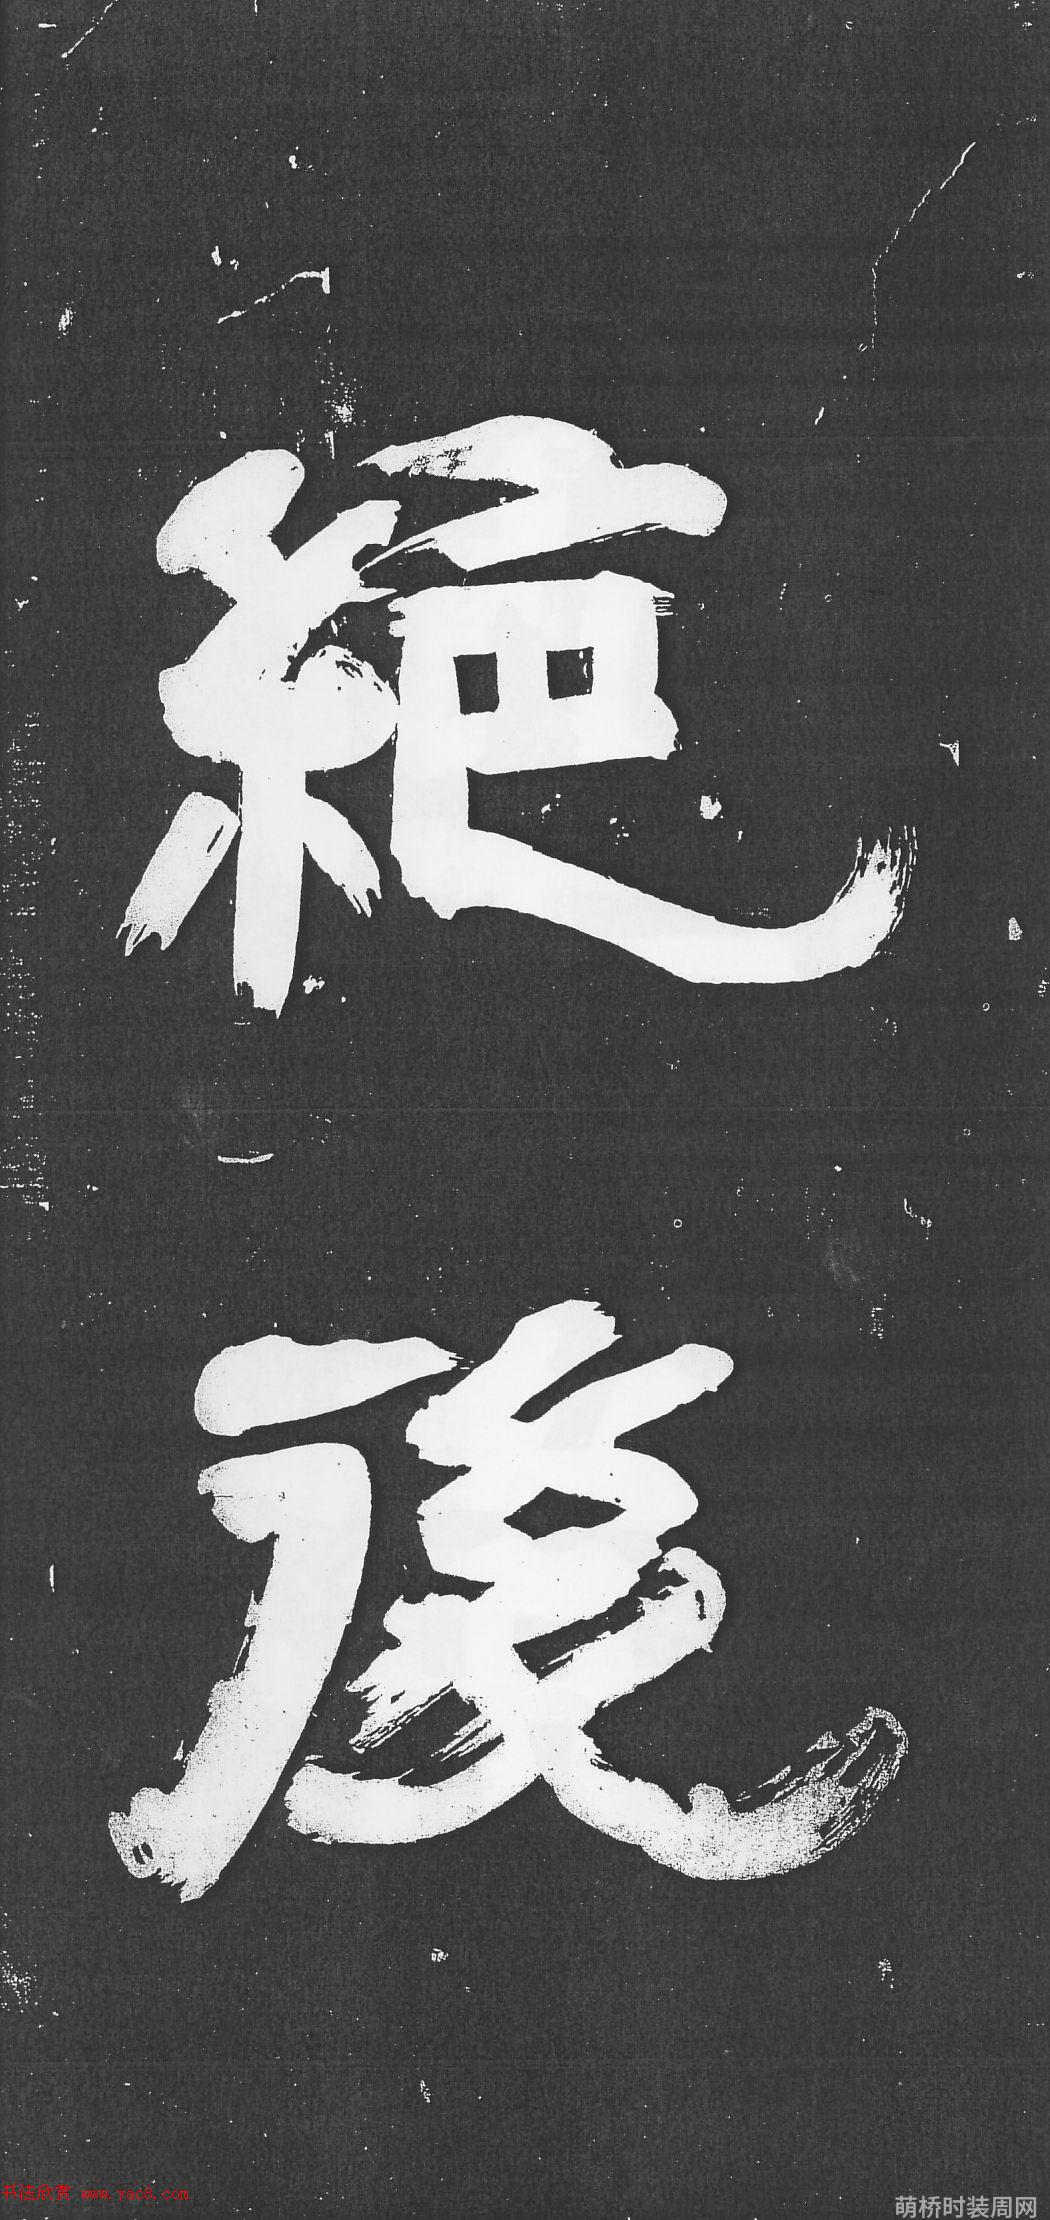 絶
後
书法欣赏 www.yac8.com
萌桥时装周网